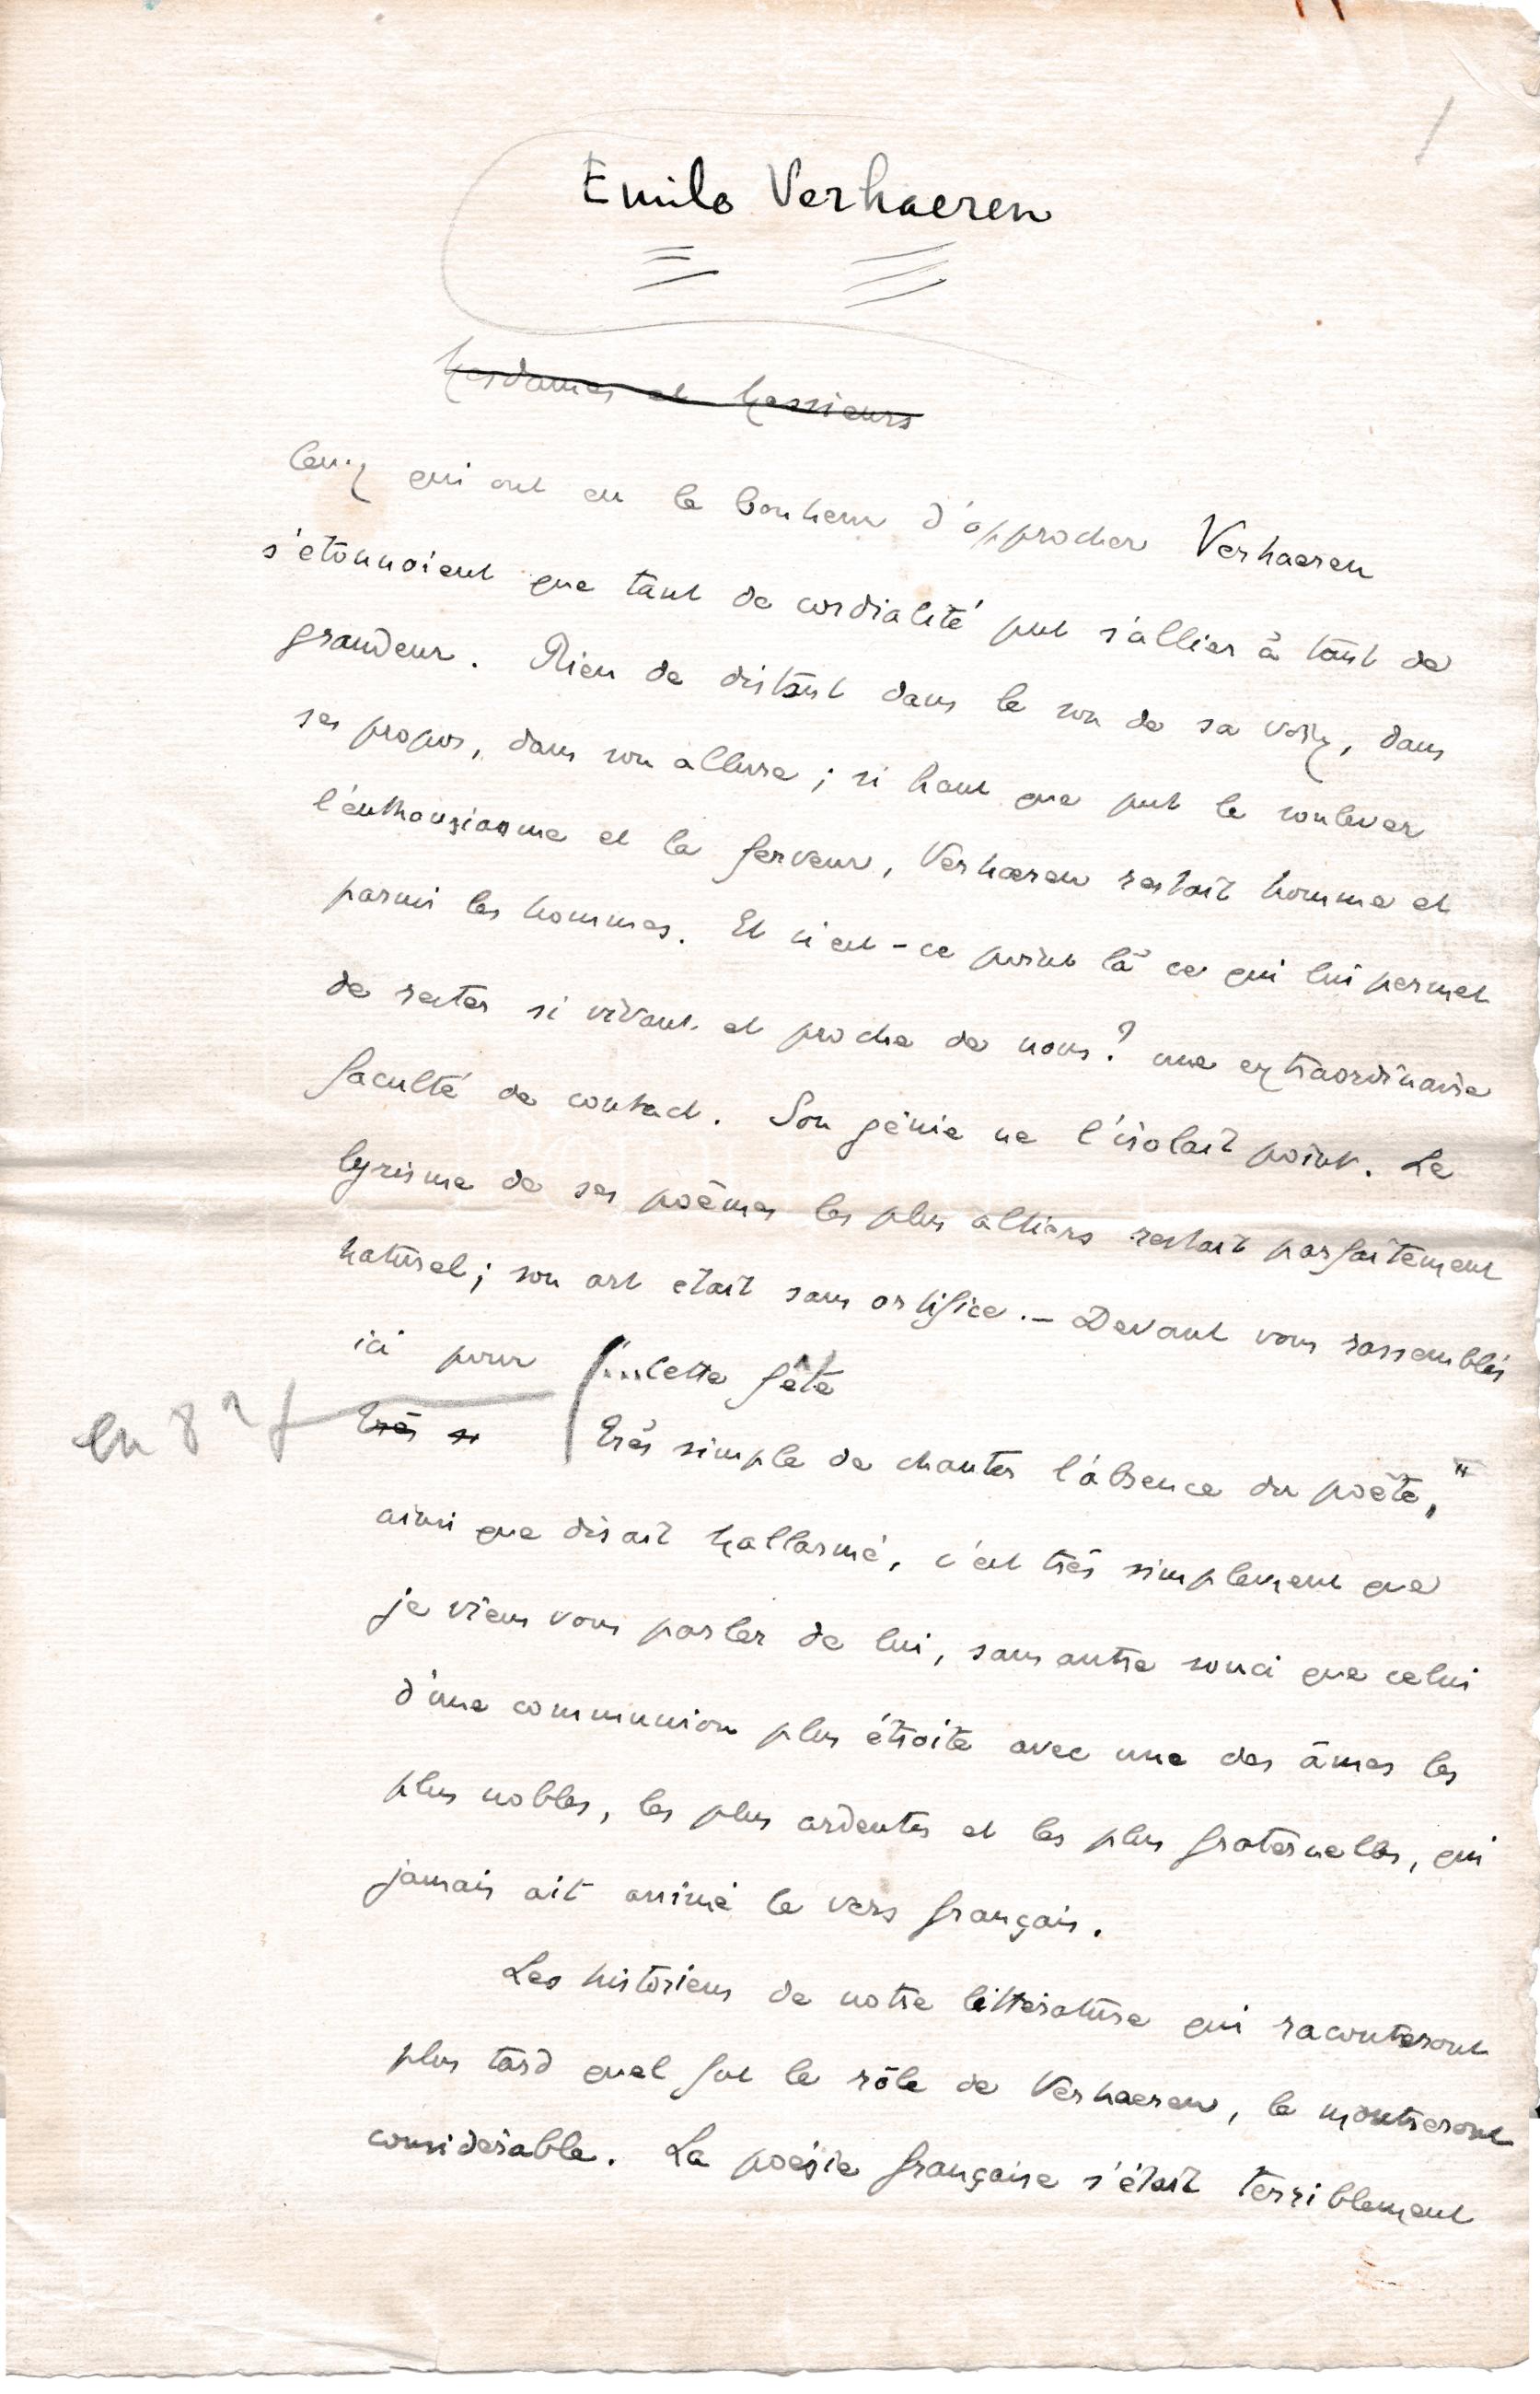 1
Emile Verhaeren
Mesdames et Messieurs
Ceux qui ont eu le bonheur d'approcher Verhaeren
s'étonnaient que tant de cordialité put s'allier à tant de
grandeur. Rien de distant dans le son de sa voix, dans
ses propos, dans son allure ; si haut que put le soulever
l'enthousiasme et la ferveur, Verhaeren restait homme et
parmi les hommes. Et n'est-ce point là ce qui lui permet
de rester si vivant et proche de nous ? une extraordinaire
faculté de contact. Son génie ne l'isolait point. Le
lyrisme de ses poèmes les plus altiers restait parfaitement
naturel ; son art était sans artifice. – Devant vous rassemblés
ici pour "...cette fête
en 8
Très si Très simple de chanter l'absence du poète,"
ainsi que disait Mallarmé, c'est très simplement que
je viens vous parler de lui, sans autre souci que celui
d'une communion plus étroite avec une des âmes les
plus nobles, les plus ardentes et les plus fraternelles, qui
jamais ait animé le vers français.
Les historiens de notre littérature qui raconteront
plus tard quel fut le rôle de Verhaeren, le montreront
considérable. La poésie française s'était terriblement